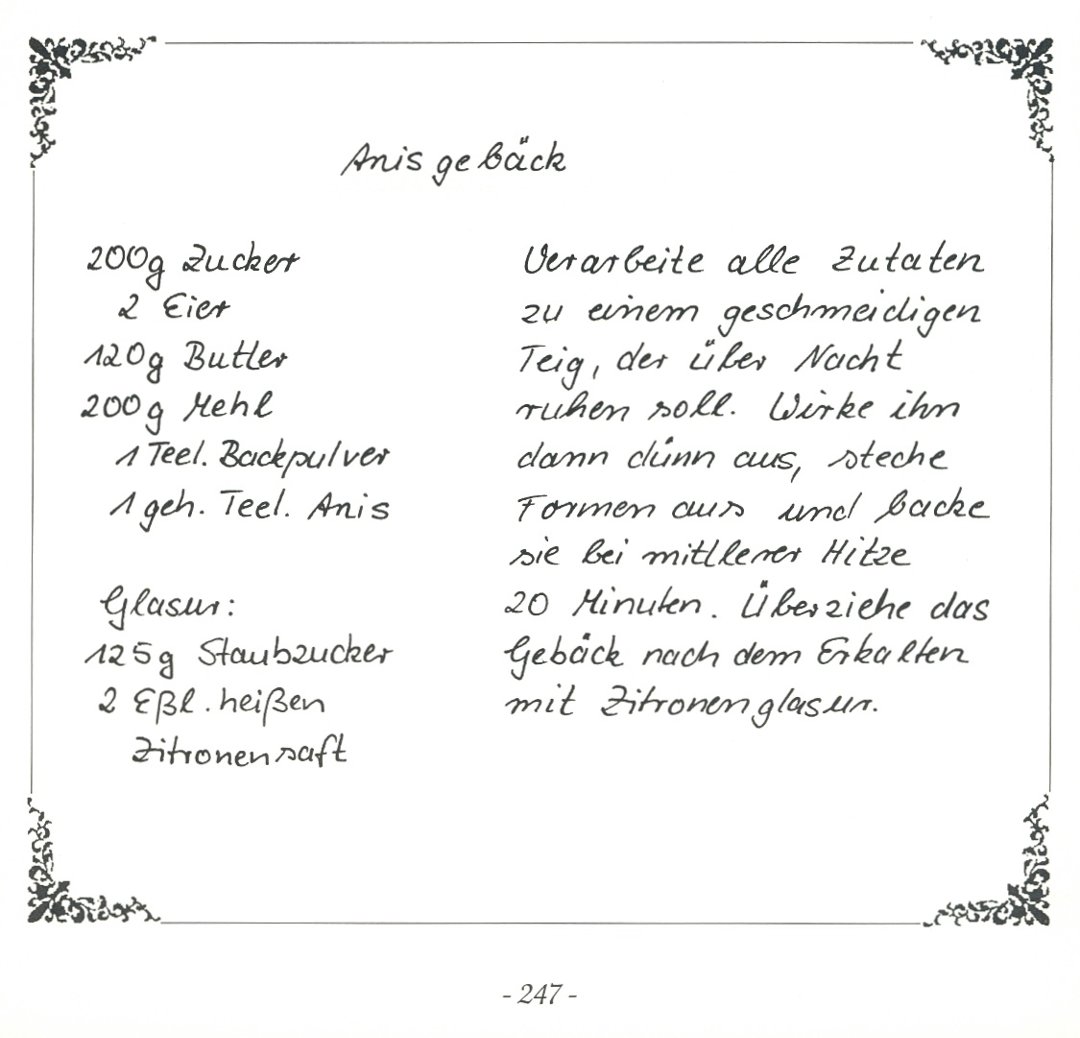 Anisgebäck
200g Zucker
2 Eier
120g Butter
200g Mehl
1 Teel. Backpulver
1 geh. Teel. Anis
Glasur:
125g Staubzucker
2 Eßl. heißen
Zitronensaft
Verarbeite alle Zutaten
zu einem geschmeidigen
Teig, der über Nacht
ruhen soll. Wirke ihn
dann dünn aus, steche
Formen aus und backe
sie bei mittlerer Hitze
20 Minuten. Überziehe das
Gebäck nach dem Erkalten
mit Zitronenglasur.
- 247 -